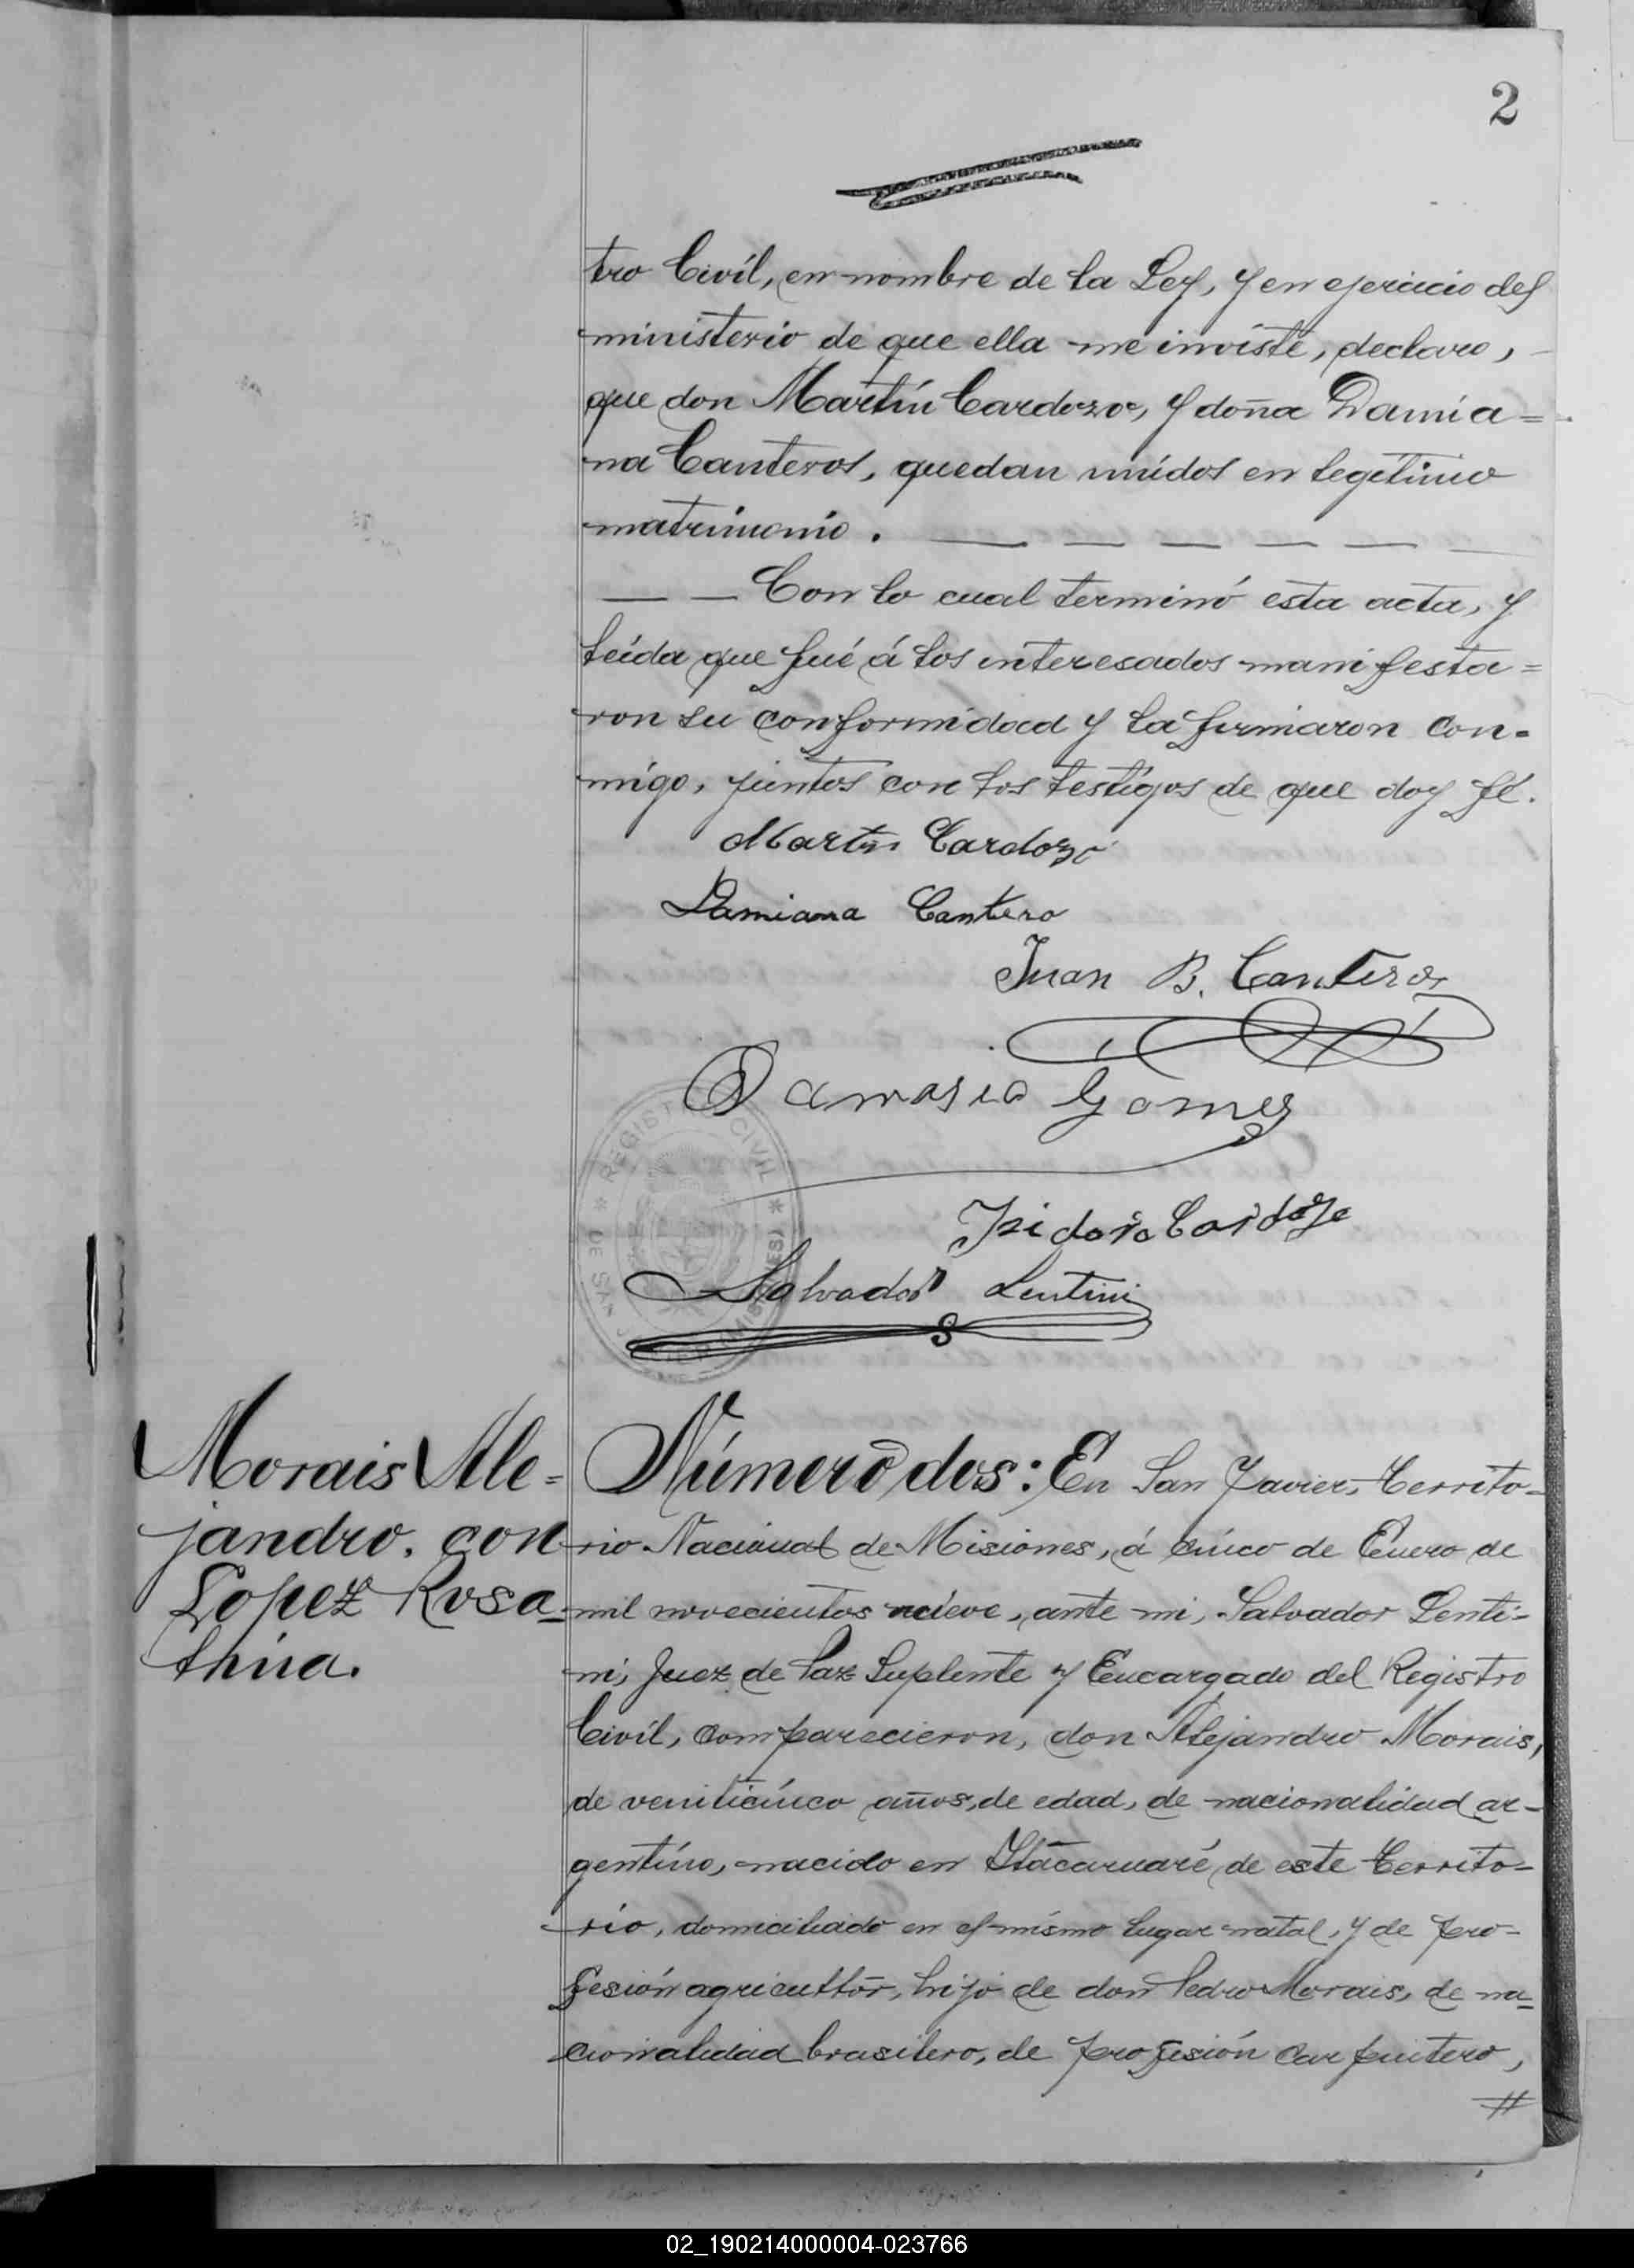 2
tro Civíl, en nombre de la Ley, y en ejercicio del
ministerio de que ella me inviste, declaro,
que don Martín Cardozo, y doña Damia=
na Canteros, quedan unídos en legítimo
matrimonio.
Con lo cual terminó esta acta, y
leída que fué á los interesados manifesta=
ron su conformidad y la firmaron con=
mígo, juntos con los testígos de que doy fé.
Martin Cardozo
Damiana Cantero
Juan B. Canteros
Damasio Gomez
REGISTRO CIVIL * DE SAN JAVIER (MISIONES) *
Isidoro Cardozo
Salvador Lentini
Morais Ale=
jandro. con
Lopez Rosa=
thína.
Número dos: En San Javier, Territo=
rio Nacional de Misiones, á cínco de Enero de
mil novecientos nueve, ante mi, Salvador Lenti=
ni, Juez de Paz Suplente y Encargado del Registro
Civíl, comparecieron, don Alejandro Morais,
de veinticínco años, de edad, de nacionalidad ar=
gentíno, nacido en Itacaruaré, de este Territo=
rio, domiciliado en el mísmo lugar natal, y de pro=
fesión agricultor, hijo de don Pedro Morais, de na=
cionalidad brasilero, de profesión carpintero,
#
02_190214000004-023766